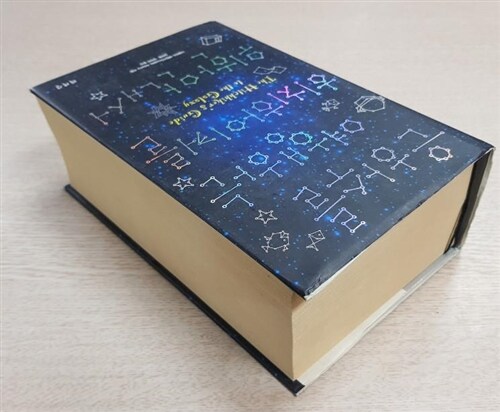 은하수를
여행하는
히치하이커를
The Hitchhiker's Guide
to the Galaxy
위한 안내서